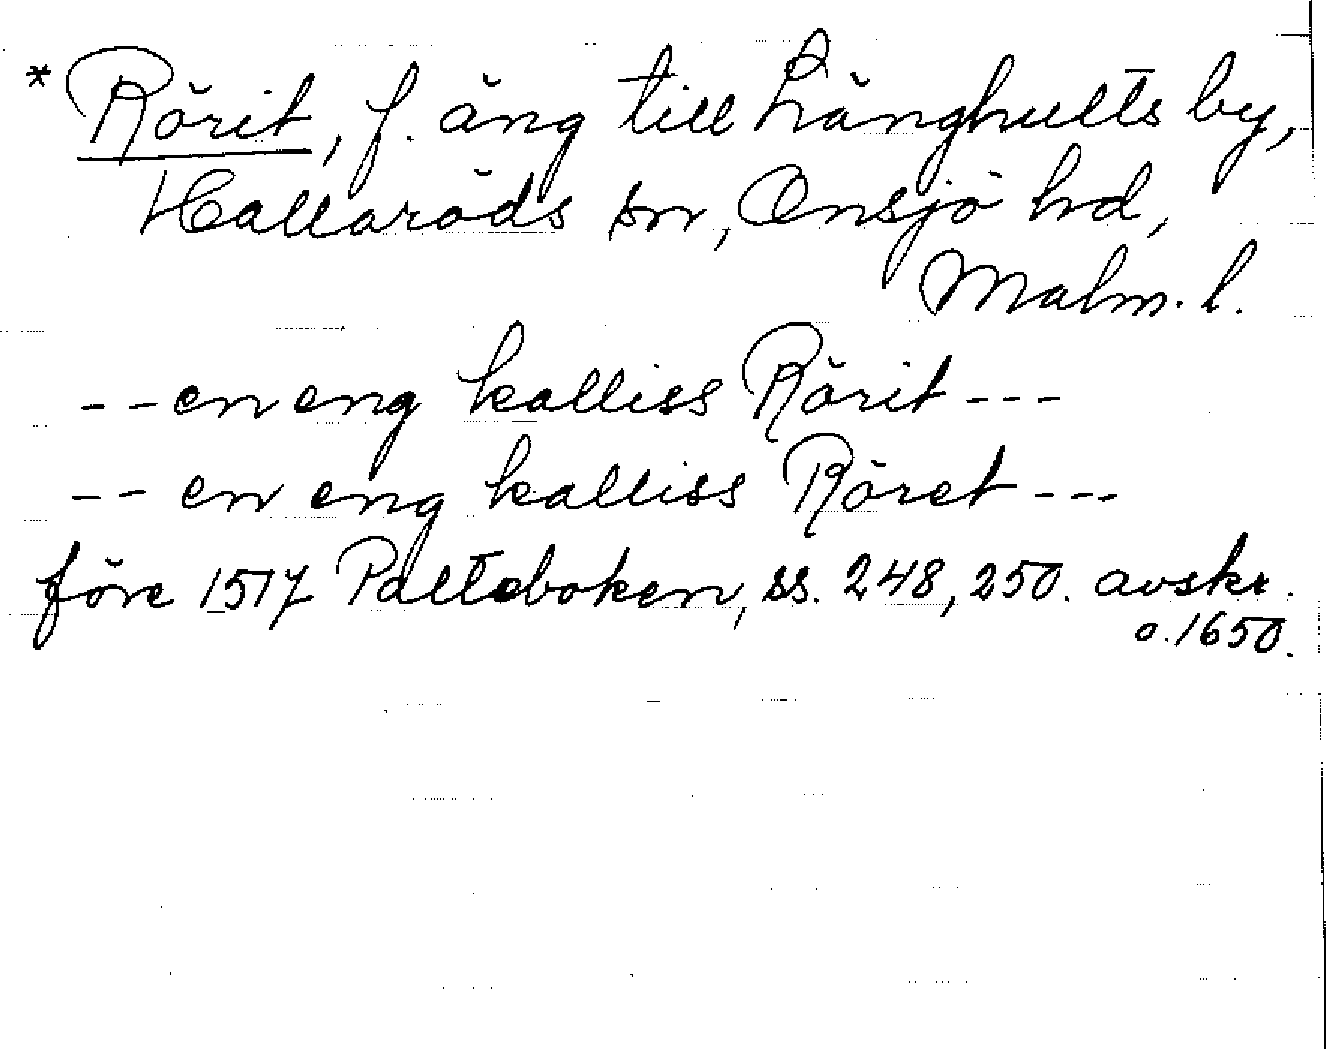 * Rörit, f. äng till Långhults by,
Hallaröds sn, Onsjö hd,
Malm. l.
-- en eng kalliss Rörit ---
-- en eng kalliss Röret ---
före 1517 Palteboken, ss. 248, 250. avskr.
o. 1650.